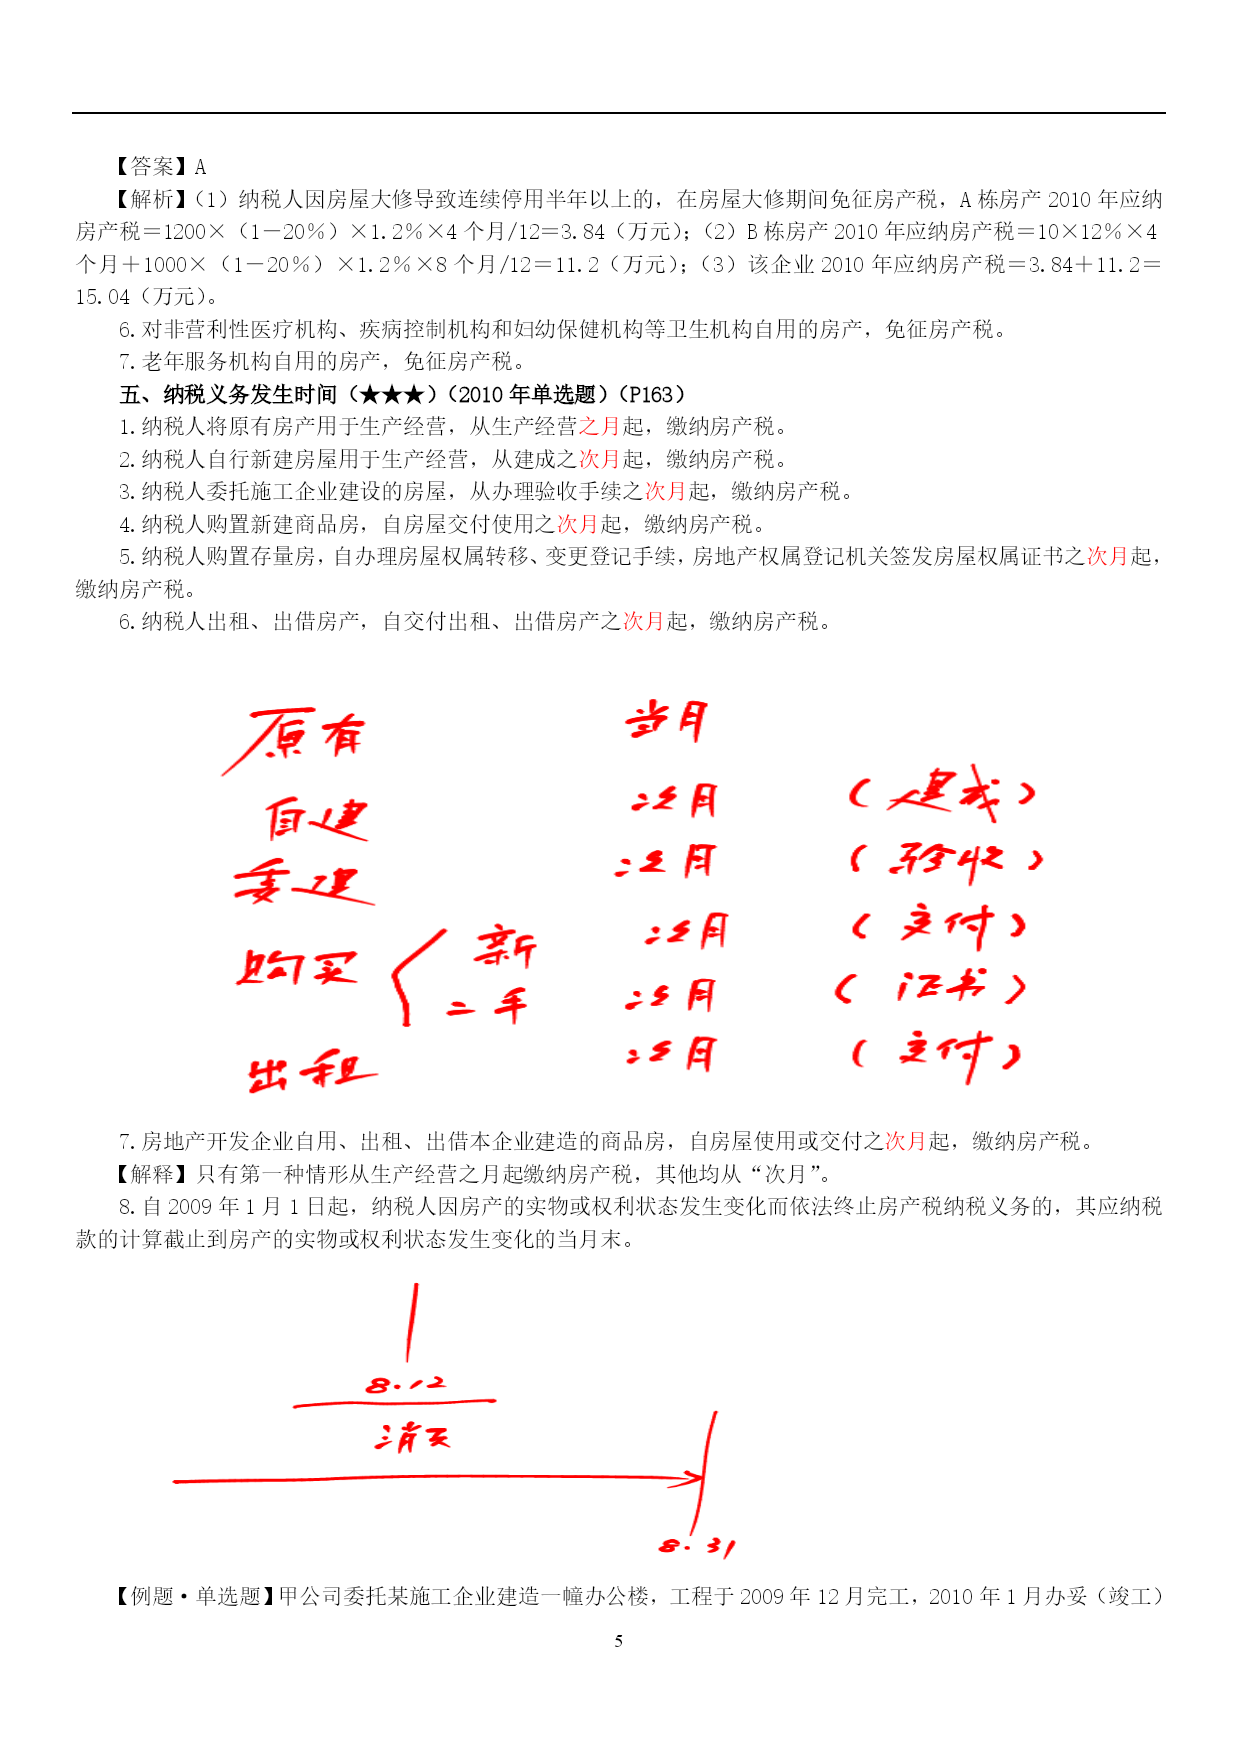 【答案】A
【解析】（1）纳税人因房屋大修导致连续停用半年以上的，在房屋大修期间免征房产税，A 栋房产 2010 年应纳
房产税＝1200×（1－20%）×1.2%×4 个月/12＝3.84（万元）；（2）B 栋房产 2010 年应纳房产税＝10×12%×4
个月＋1000×（1－20%）×1.2%×8 个月/12＝11.2（万元）；（3）该企业 2010 年应纳房产税＝3.84＋11.2＝
15.04（万元）。
6.对非营利性医疗机构、疾病控制机构和妇幼保健机构等卫生机构自用的房产，免征房产税。
7.老年服务机构自用的房产，免征房产税。
五、纳税义务发生时间（★★★）（2010 年单选题）（P163）
1.纳税人将原有房产用于生产经营，从生产经营之月起，缴纳房产税。
2.纳税人自行新建房屋用于生产经营，从建成之次月起，缴纳房产税。
3.纳税人委托施工企业建设的房屋，从办理验收手续之次月起，缴纳房产税。
4.纳税人购置新建商品房，自房屋交付使用之次月起，缴纳房产税。
5.纳税人购置存量房，自办理房屋权属转移、变更登记手续，房地产权属登记机关签发房屋权属证书之次月起，
缴纳房产税。
6.纳税人出租、出借房产，自交付出租、出借房产之次月起，缴纳房产税。
原有 当月
自建 次月 （建成）
委建 次月 （验收）
购买 新 次月 （交付）
二手 次月 （证书）
出租 次月 （交付）
7.房地产开发企业自用、出租、出借本企业建造的商品房，自房屋使用或交付之次月起，缴纳房产税。
【解释】只有第一种情形从生产经营之月起缴纳房产税，其他均从“次月”。
8.自 2009 年 1 月 1 日起，纳税人因房产的实物或权利状态发生变化而依法终止房产税纳税义务的，其应纳税
款的计算截止到房产的实物或权利状态发生变化的当月末。
8.12
消灭
8.31
【例题·单选题】甲公司委托某施工企业建造一幢办公楼，工程于 2009 年 12 月完工，2010 年 1 月办妥（竣工）
5